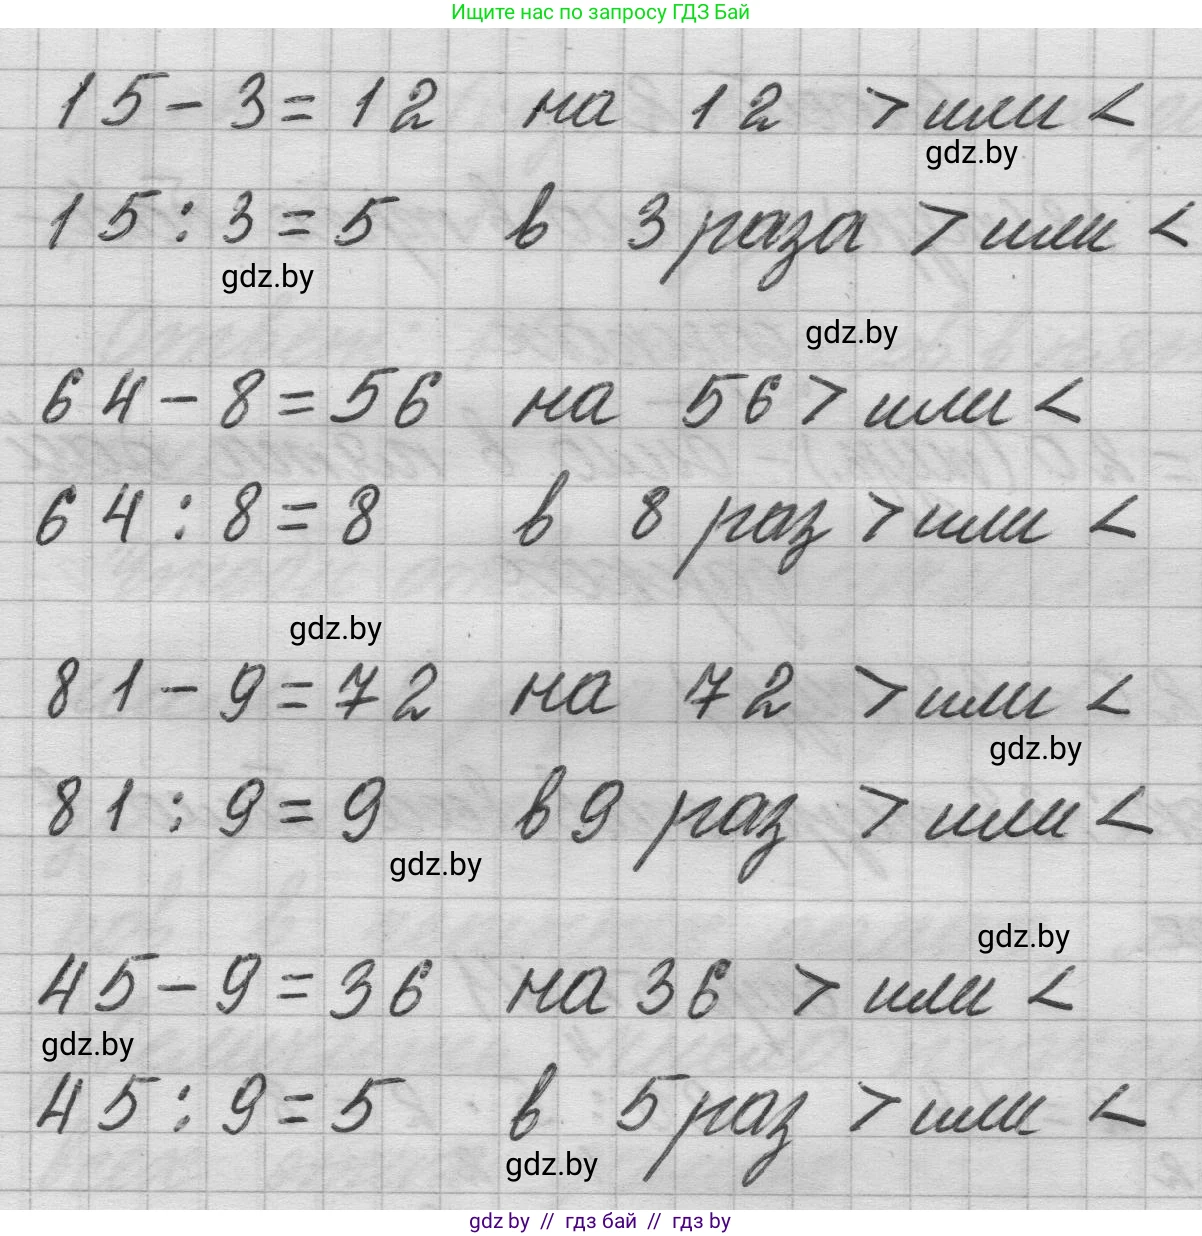 Ищите нас по запросу ГДЗ Бай
15 - 3 = 12 на 12 > или <
gdz.by
15 : 3 = 5 в 3 раза > или <
gdz.by
gdz.by
64 - 8 = 56 на 56 > или <
64 : 8 = 8 в 8 раз > или <
gdz.by
81 - 9 = 72 на 72 > или <
gdz.by
81 : 9 = 9 в 9 раз > или <
gdz.by
gdz.by
45 - 9 = 36 на 36 > или <
gdz.by
45 : 9 = 5 в 5 раз > или <
gdz.by
gdz by // гдз бай // гдз by